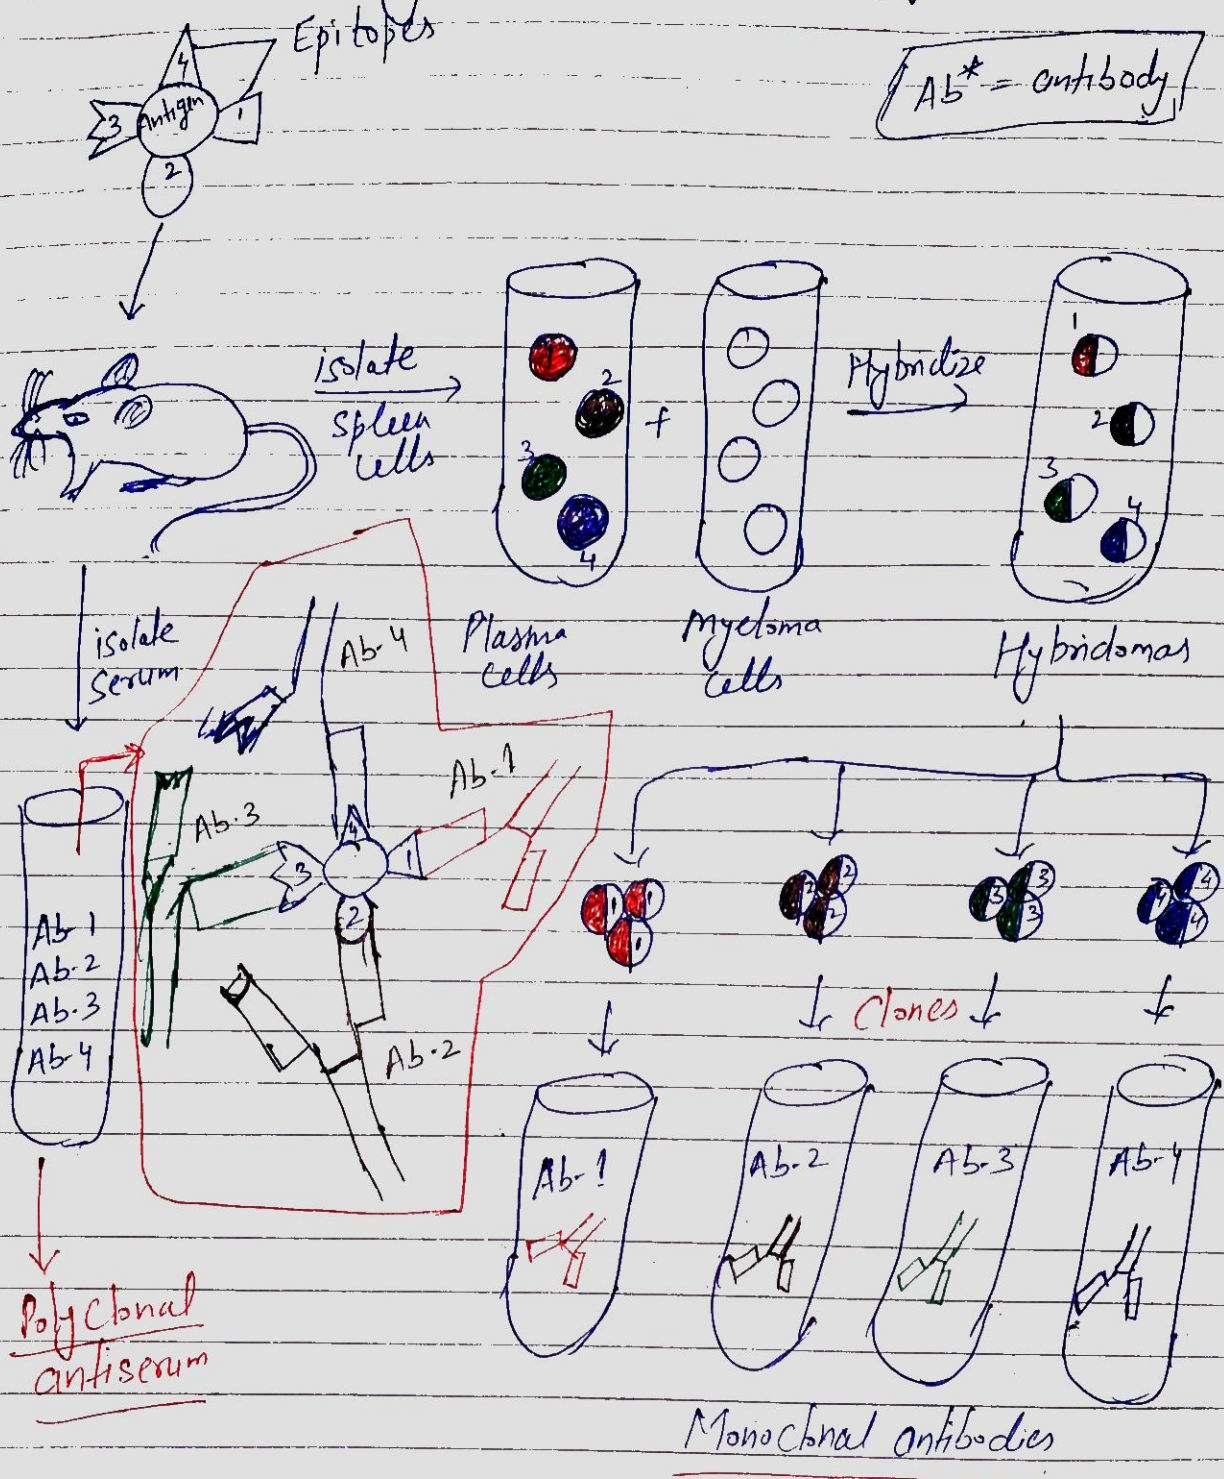 Epitopes
Ab* = antibody
4
Antigen
3
1
2
isolate
spleen
cells
1
2
3
4
+
Hybridize
1
2
3
4
Plasma
cells
Myeloma
cells
Hybridomas
isolate
Serum
Ab-4
Ab-1
Ab-3
Ab-2
4
3
1
2
Ab-1
Ab-2
Ab-3
Ab-4
1 1 1
2 2 2
3 3 3
4 4 4
Clones
Ab-1
Ab-2
Ab-3
Ab-4
Polyclonal
antiserum
Monoclonal antibodies